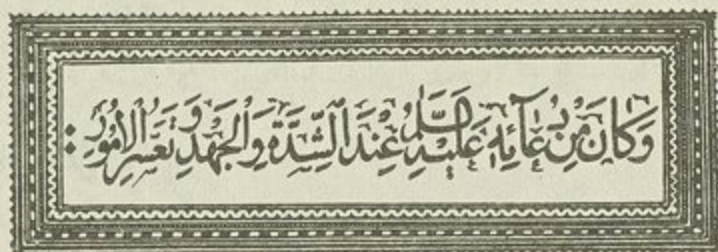 وَكَانَ مِنْ دُعَائِهِ عَلَيْهِ السَّلَامُ عِنْدَ الشِّدَّةِ وَالْجَهْدِ وَتَعَسُّرِ الْأُمُورِ :